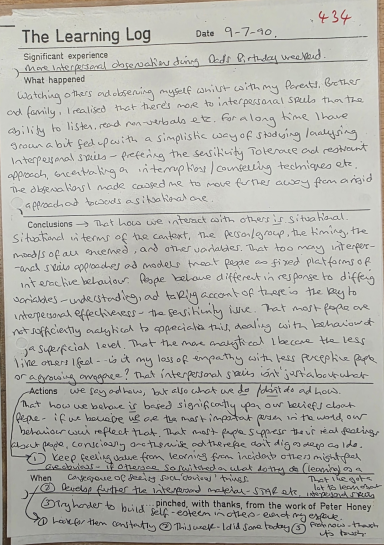 434
The Learning Log Date 9-7-90.
Significant experience
More Interpersonal observations during Dad's Birthday weekend.
What happened
Watching others and observing myself whilst with my Parents, Brother
and family, I realised that there's more to interpersonal skills than the
ability to listen, read non-verbals etc. For a long time I have
grown a bit fed up with a simplistic way of studying/analysing
Interpersonal skills - prefering the sensitivity Tolerance and restraint
approach, concentrating on interruptions/counselling techniques etc.
The observations I made caused me to move further away from a rigid
approach towards a situational one.
Conclusions → That how we interact with others is Situational.
Situational in terms of the context, the person/group, the timing, the
moods of all concerned, and other variables. That too many interper-
-onal skills approaches and models treat people as fixed platforms of
interactive behaviour. People behave different in response to differing
variables - understanding, and taking account of these is the key to
interpersonal effectiveness - the sensitivity issue. That most people are
not sufficiently analytical to appreciate this, dealing with behaviour at
a superficial level. That the more analytical I become the less
like others I feel - is it my loss of empathy with less perceptive people
or a growing arrogance? That interpersonal skills isn't just about what
Actions we say and how, but also what we do/don't do and how.
That how we behave is based significantly upon our beliefs about
People - if we believe we are the most important person in the world, our
behaviour will reflect that. That most people suppress their real feelings
about people, consciously or otherwise and therefore don't dig as deep as I do.
① Keep feeling value from learning from incidents others might feel
are obvious - if others are so switched on what do they do (learning) as a
When consequence of seeing such 'obvious' things.
That I've got a lot to learn about interpersonal skills
② Develop further the interpersonal material - STAR etc.
③ Try harder to build self-esteem in others
pinched, with thanks, from the work of Peter Honey
① Look for them constantly ② This week - I did some today ③ From now